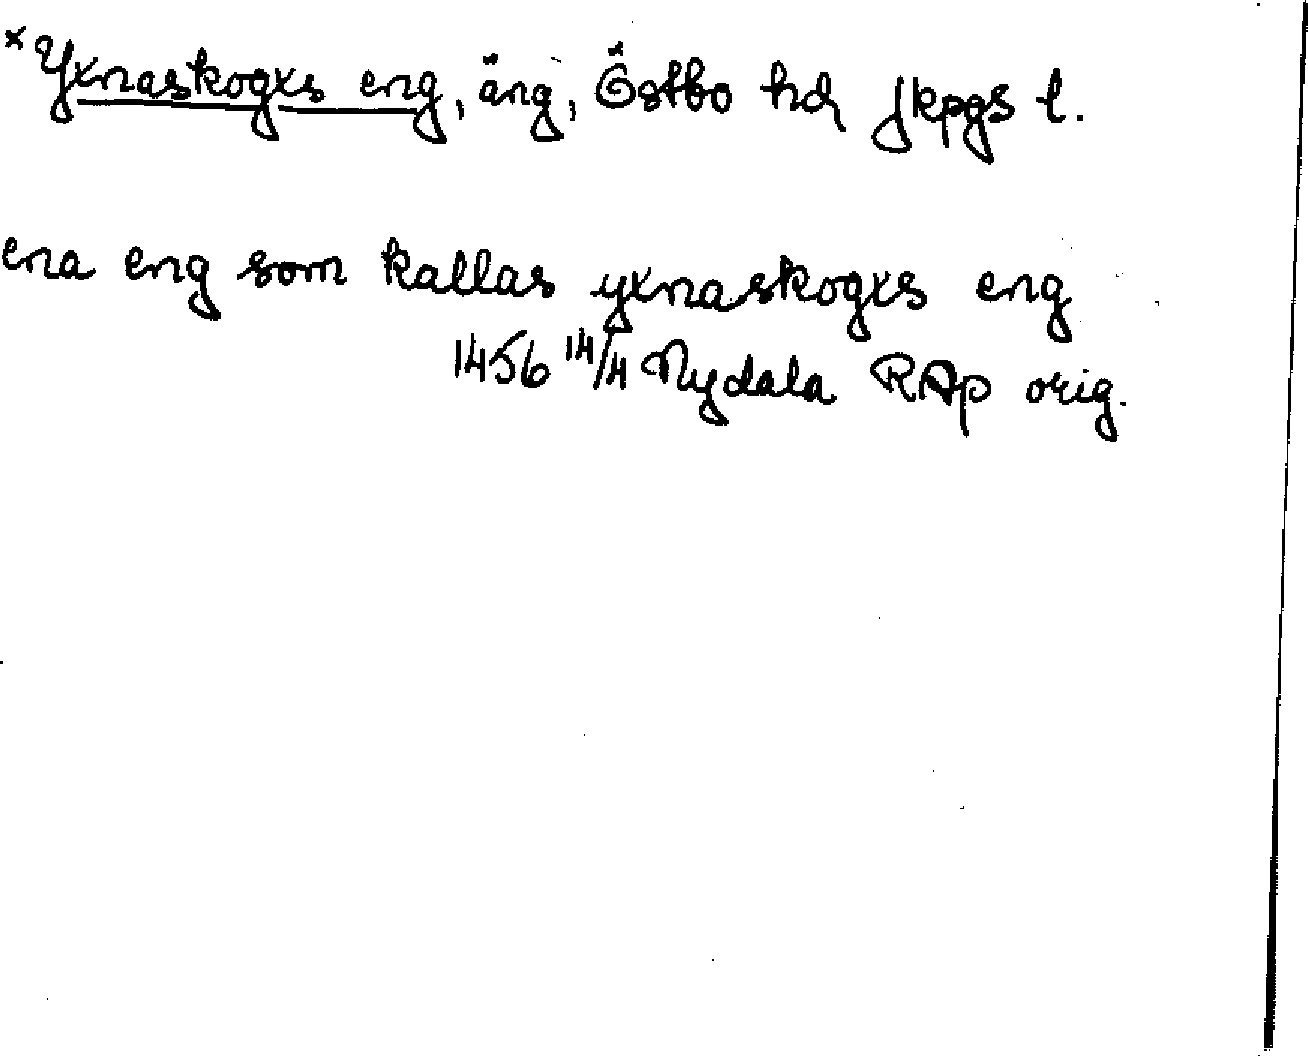 ×Yxnaskogxs eng, äng, Östbo hd Jkpgs l.
ena eng som kallas yxnaskogxs eng
1456 14/4 Nydala RAp orig.